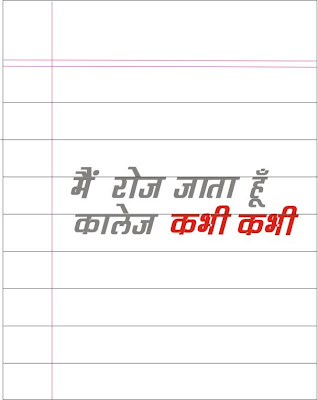 मैं रोज जाता हूँ
कालेज कभी कभी